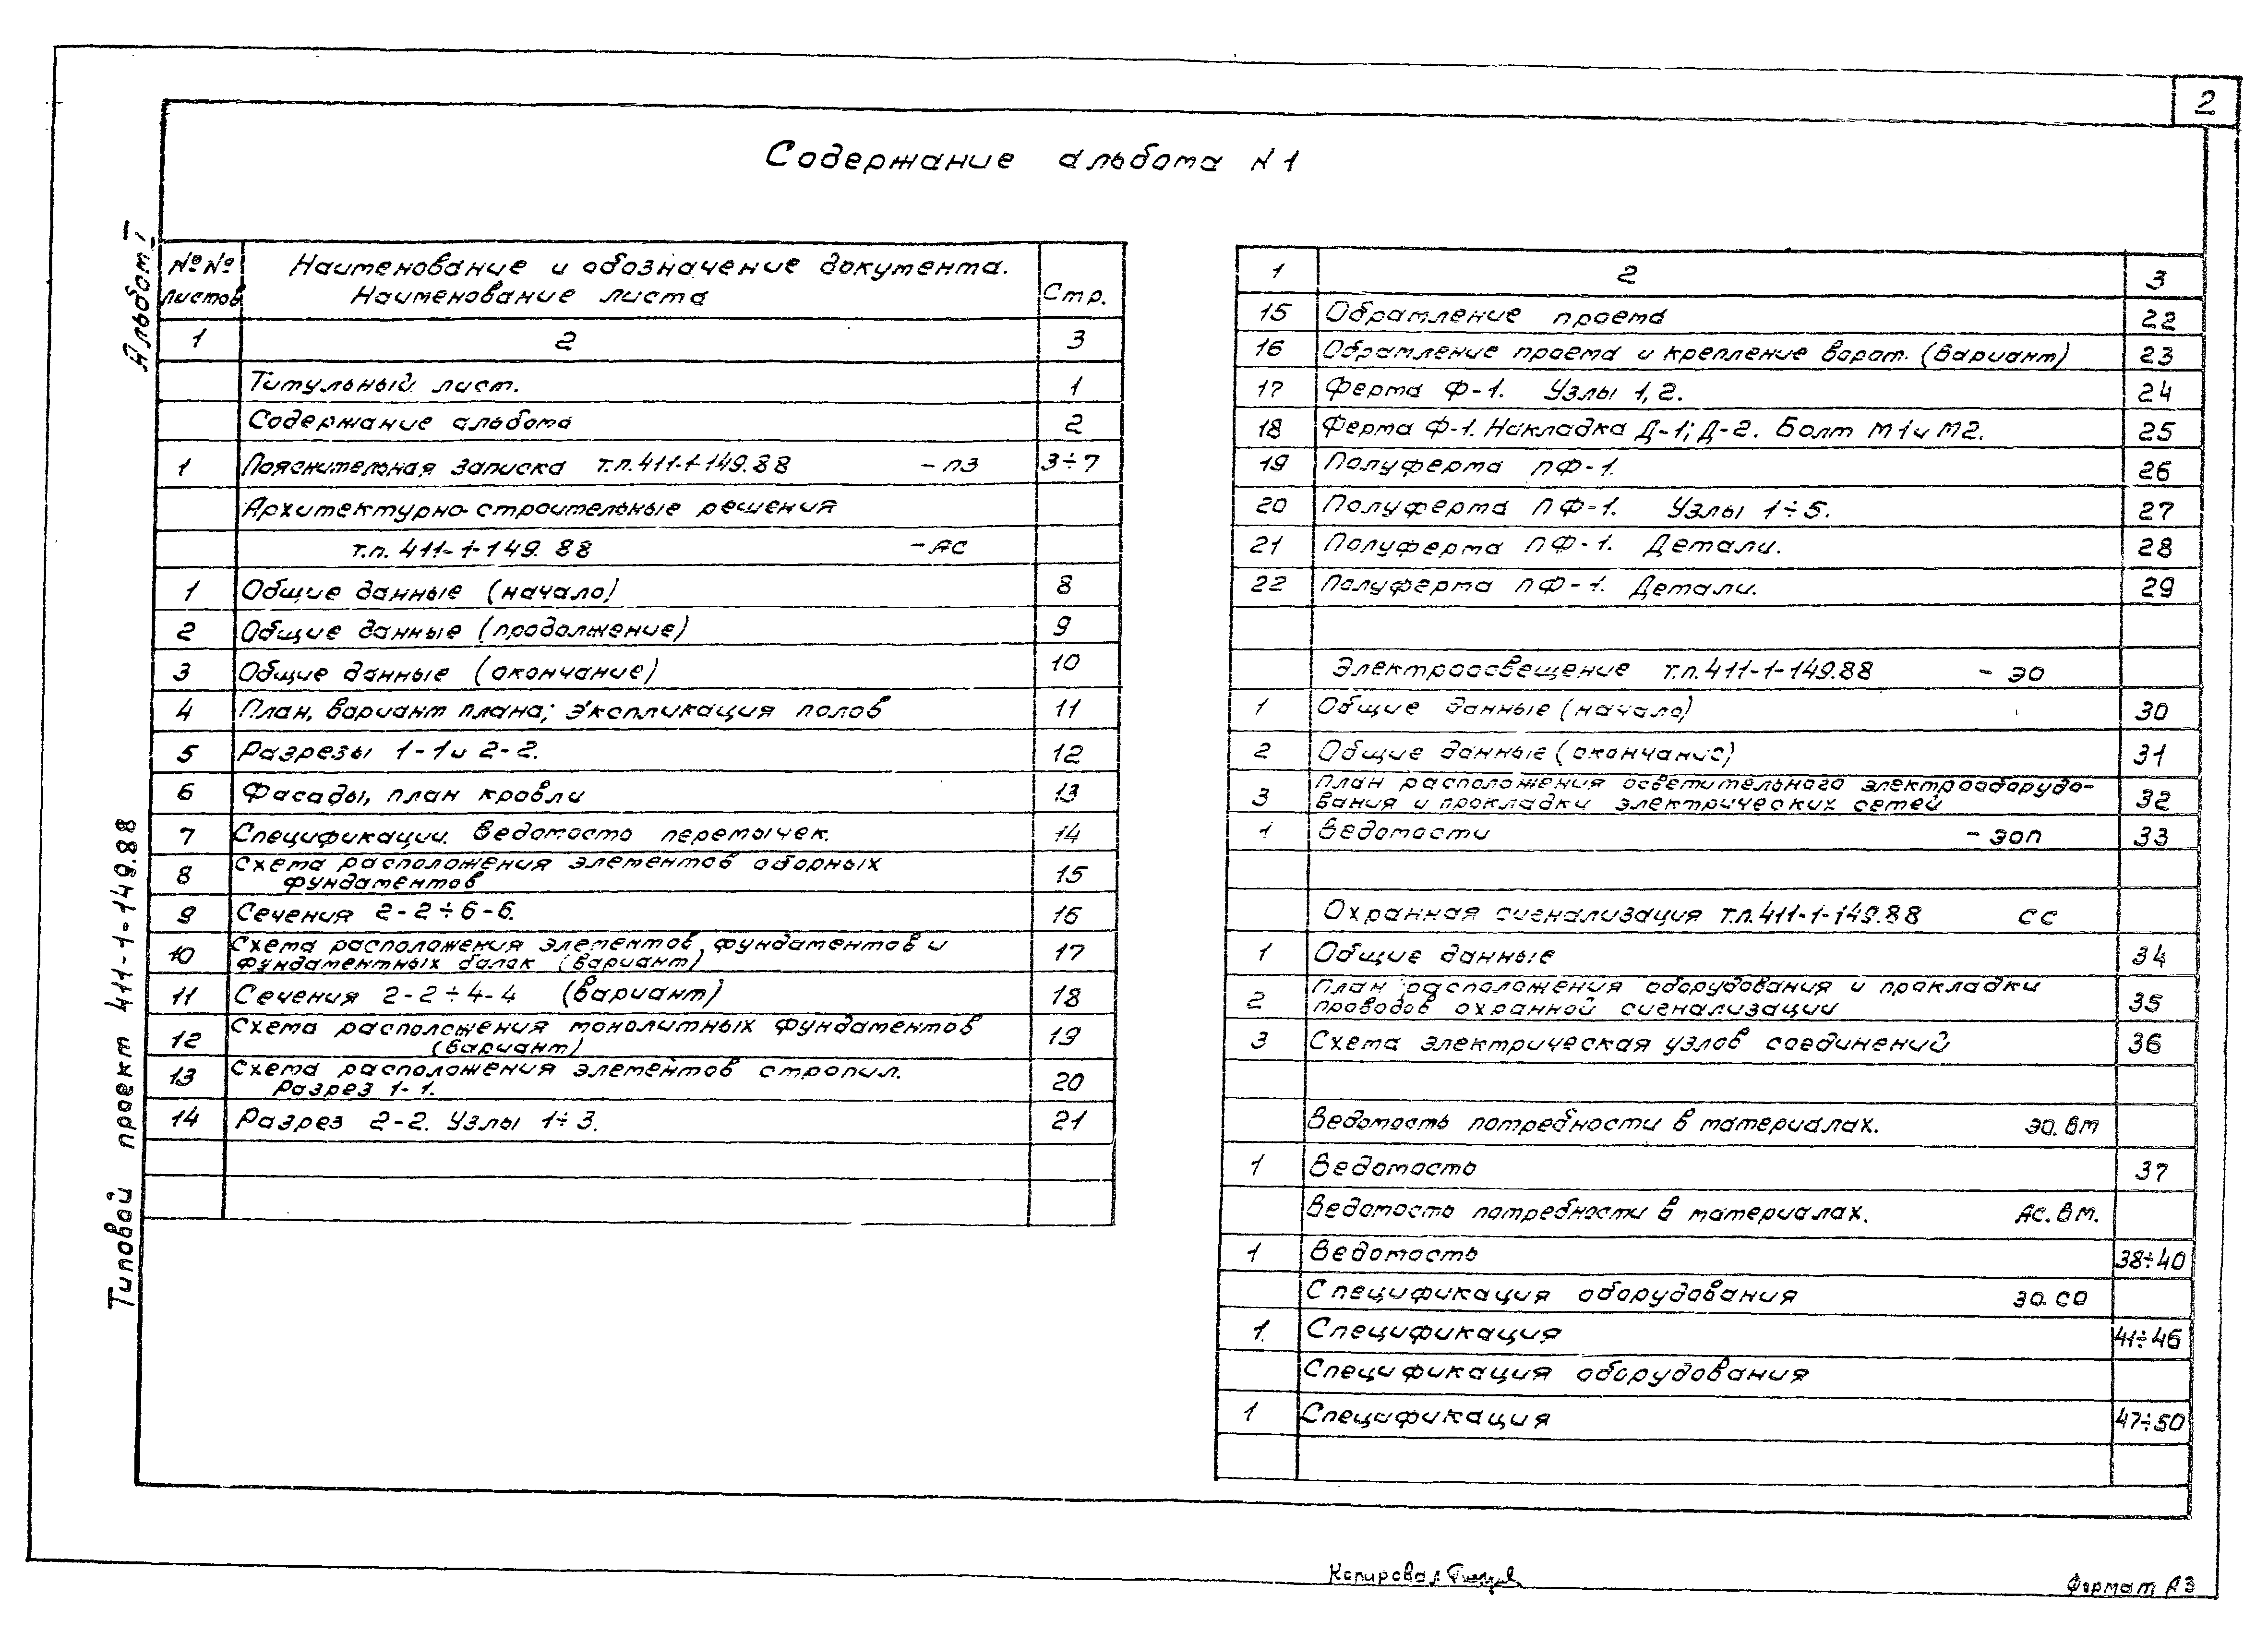 2
Содержание альбома N1
Альбом I
Типовой проект 411-1-149.88
№№ листов
Наименование и обозначение документа.
Наименование листа
Стр.
1 2 3
Титульный лист. 1
Содержание альбома 2
1 Пояснительная записка т.п.411-1-149.88 - ПЗ 3÷7
Архитектурно-строительные решения
т.п. 411-1-149.88 - АС
1 Общие данные (начало) 8
2 Общие данные (продолжение) 9
3 Общие данные (окончание) 10
4 План, вариант плана; экспликация полов 11
5 Разрезы 1-1 и 2-2. 12
6 Фасады, план кровли 13
7 Спецификации. Ведомость перемычек. 14
8 Схема расположения элементов сборных
фундаментов 15
9 Сечения 2-2÷6-6. 16
10 Схема расположения элементов, фундаментов и
фундаментных балок (вариант) 17
11 Сечения 2-2÷4-4 (вариант) 18
12 Схема расположения монолитных фундаментов
(вариант) 19
13 Схема расположения элементов стропил.
Разрез 1-1. 20
14 Разрез 2-2. Узлы 1÷3. 21
1 2 3
15 Обрамление проема 22
16 Обрамление проема и крепление ворот. (вариант) 23
17 Ферма Ф-1. Узлы 1,2. 24
18 Ферма Ф-1. Накладка Д-1; Д-2. Болт М1 и М2. 25
19 Полуферма ПФ-1. 26
20 Полуферма ПФ-1. Узлы 1÷5. 27
21 Полуферма ПФ-1. Детали. 28
22 Полуферма ПФ-1. Детали. 29
Электроосвещение т.п.411-1-149.88 - ЭО
1 Общие данные (начало) 30
2 Общие данные (окончание) 31
3 План расположения осветительного электрооборудо-
вания и прокладки электрических сетей 32
1 Ведомости - ЭОП 33
Охранная сигнализация т.п.411-1-149.88 СС
1 Общие данные 34
2 План расположения оборудования и прокладки
проводов охранной сигнализации 35
3 Схема электрическая узлов соединений 36
Ведомость потребности в материалах. ЭО.ВМ
1 Ведомость 37
Ведомость потребности в материалах. АС.ВМ.
1 Ведомость 38÷40
Спецификация оборудования ЭО.СО
1. Спецификация 41÷46
Спецификация оборудования
1 Спецификация 47÷50
Копировал
Формат А3